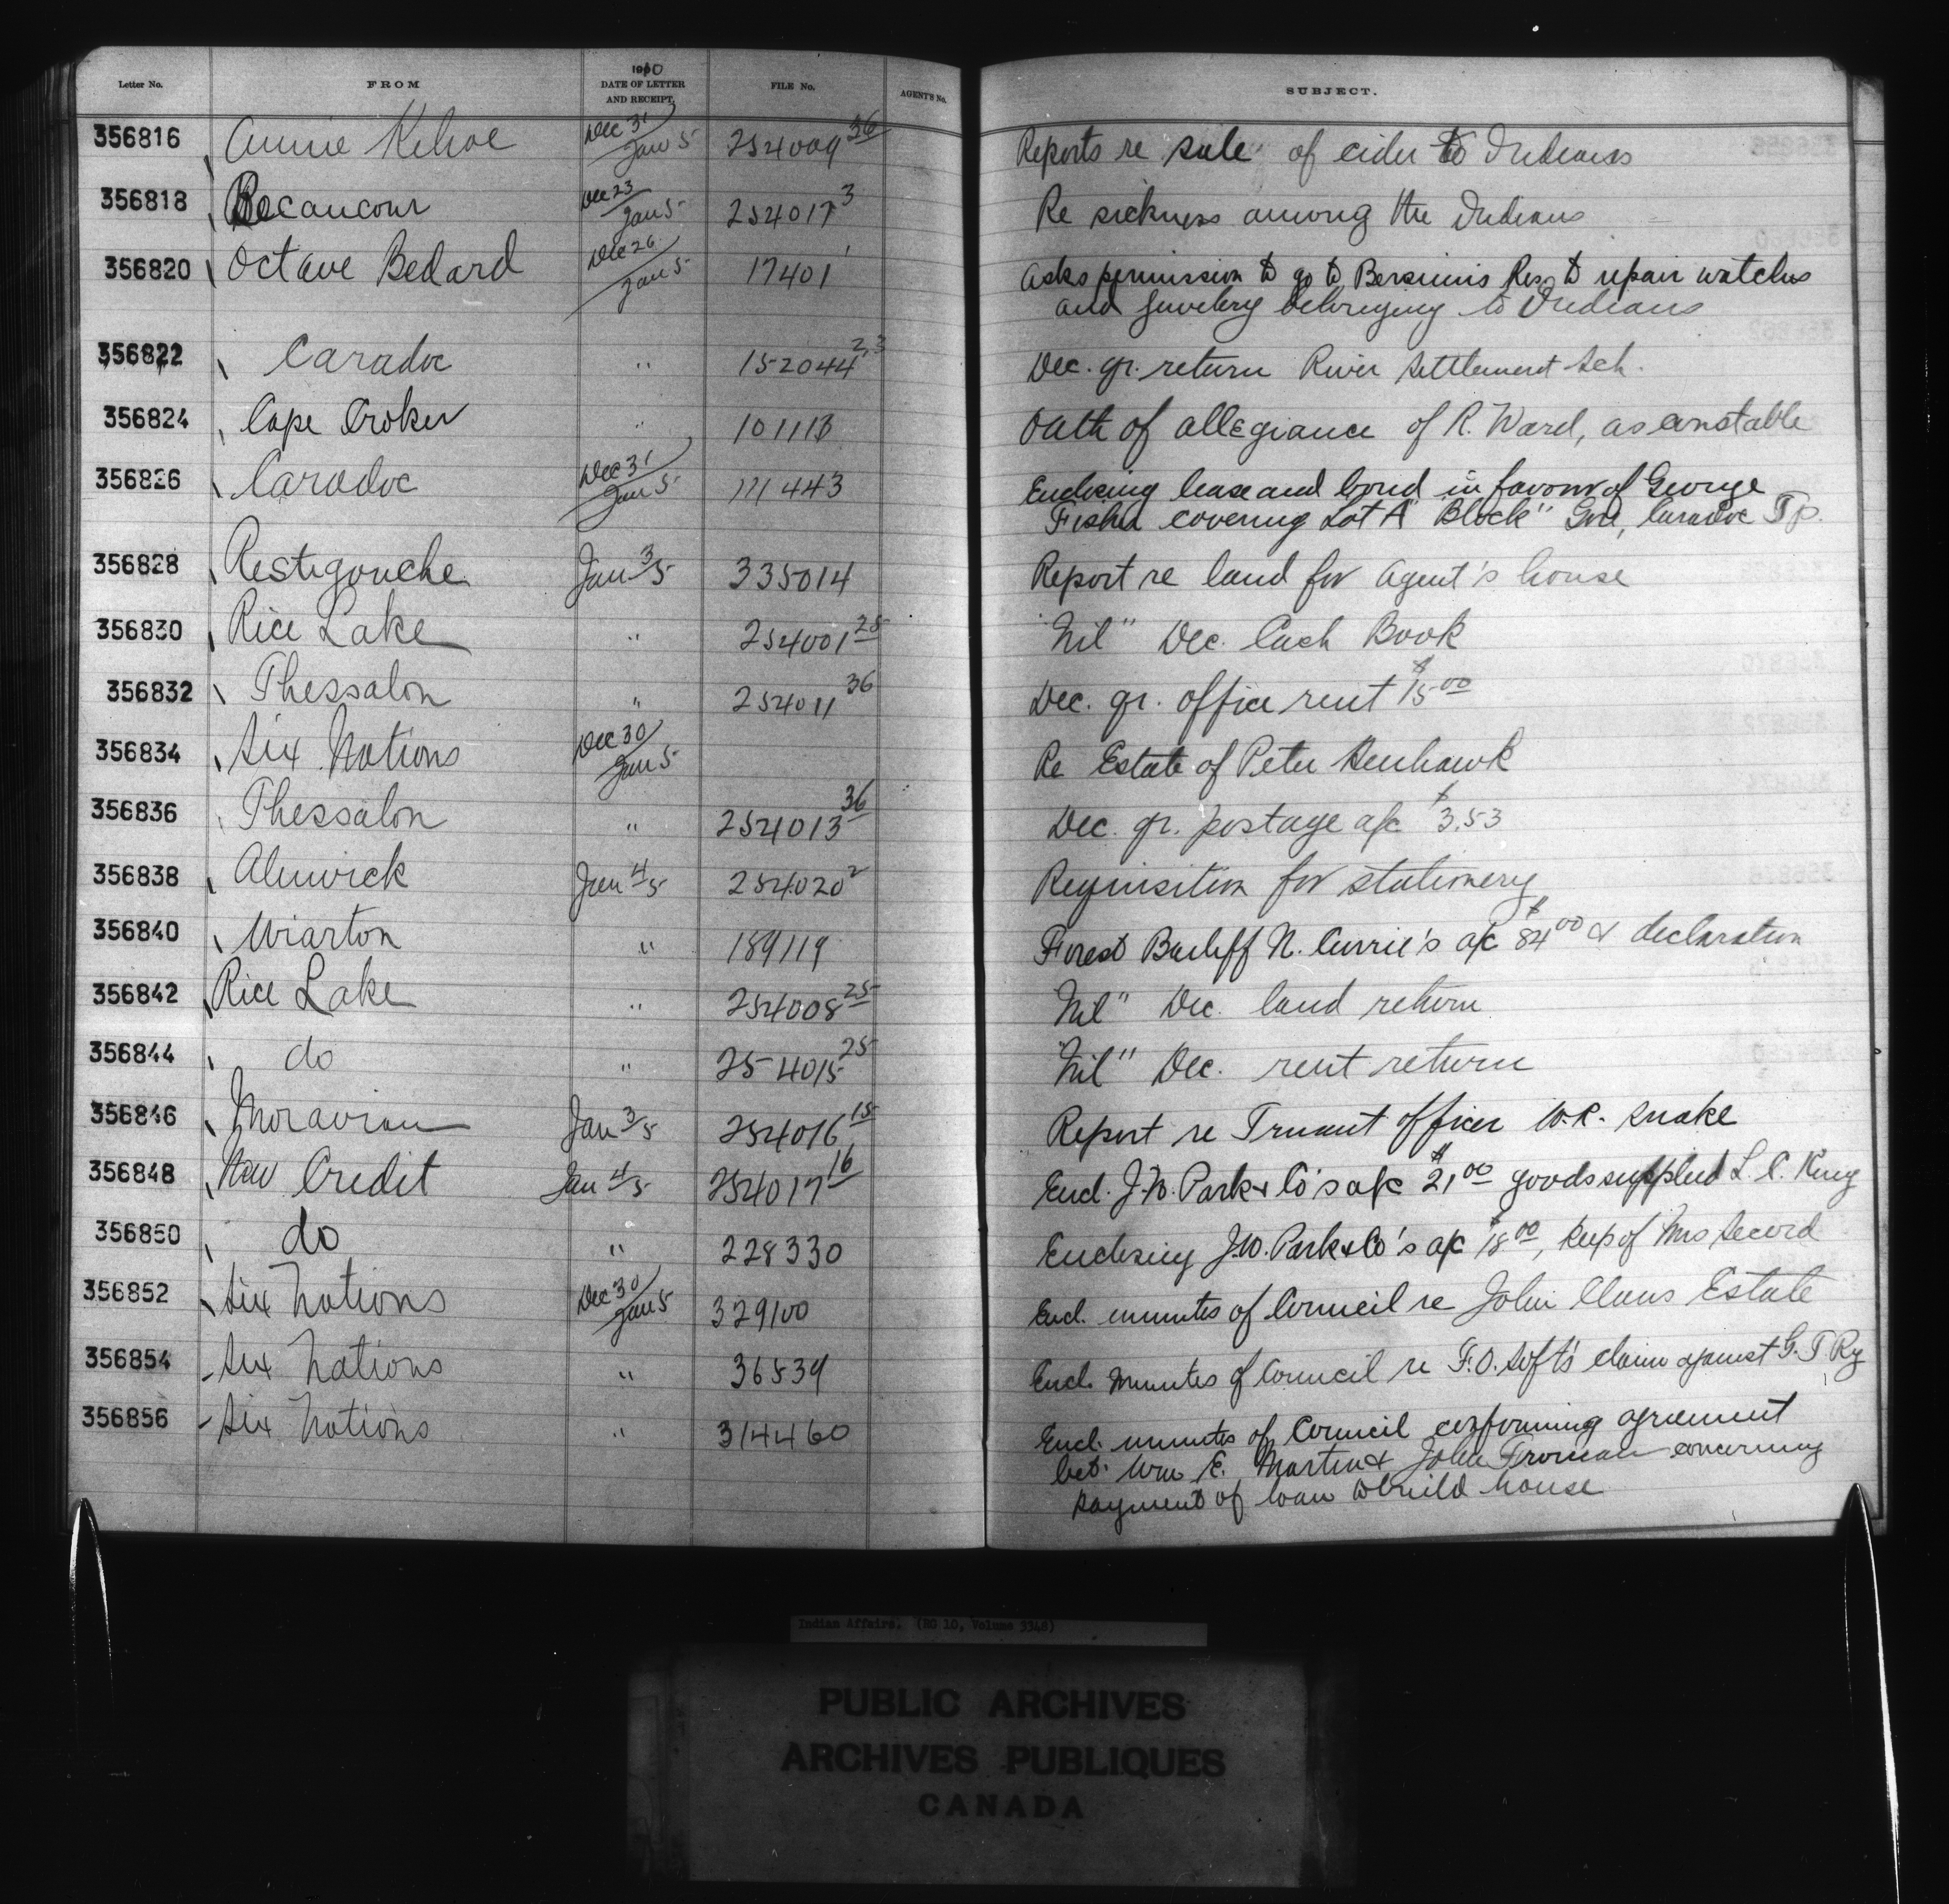 Letter No. FROM 1910 DATE OF LETTER AND RECEIPT. FILE No. AGENT'S No. SUBJECT.
356816 Annie Kehoe Dec 31/Jan 5 254009 36 Reports re sale of cider to Indians
356818 Becancour Dec 23/Jan 5 254017 3 Re sickness among the Indians
356820 Octave Bedard Dec 26/Jan 5 17401 1 Asks permission to go to Bersimis Res. to repair watches
and jewelery belonging to Indians
356822 Caradoc " 152044 2,3 Dec. qr. return River Settlement Sch.
356824 Cape Croker " 101113 Oath of allegiance of R. Ward, as constable
356826 Caradoc Dec 31/Jan 5 111443 Enclosing lease and bond in favour of George
Fisher covering Lot A "Block" Caradoc Tp.
356828 Restigouche Jan 3/5 335014 Report re land for Agent's house
356830 Rice Lake " 254001 25 "Nil" Dec. Cash Book
356832 Thessalon " 254011 36 Dec. qr. office rent $15 00
356834 Six Nations Dec 30/Jan 5 Re Estate of Peter Henhawk
356836 Thessalon " 254013 36 Dec. qr. postage a/c $3.53
356838 Alnwick Jan 4/5 254020 2 Requisition for stationery
356840 Wiarton " 189119 Forest Bailiff N. Currie's a/c $84 00 & declaration
356842 Rice Lake " 254008 25 "Nil" Dec. land return
356844 do " 254015 25 "Nil" Dec. rent return
356846 Moravian Jan 3/5 254016 15 Report re Truant officer W.R. Snake
356848 New Credit Jan 4/5 254017 16 Encl. J.W. Park & Co's a/c $21 00 goods supplied L. C. King
356850 do " 228330 Enclosing J.W. Park & Co's a/c $18 00, keep of Mrs Secord
356852 Six Nations Dec 30/Jan 5 329100 Encl. minutes of Council re John Claus Estate
356854 Six Nations " 36839 Encl. Minutes of Council re F.O. Loft's claim against G. T. Ry
356856 Six Nations " 314460 Encl. minutes of Council confirming agreement
bet. Wm E. Martin & John Froman concerning
payment of loan to build house
Indian Affairs. (RG 10, Volume 3348)
PUBLIC ARCHIVES
ARCHIVES PUBLIQUES
CANADA